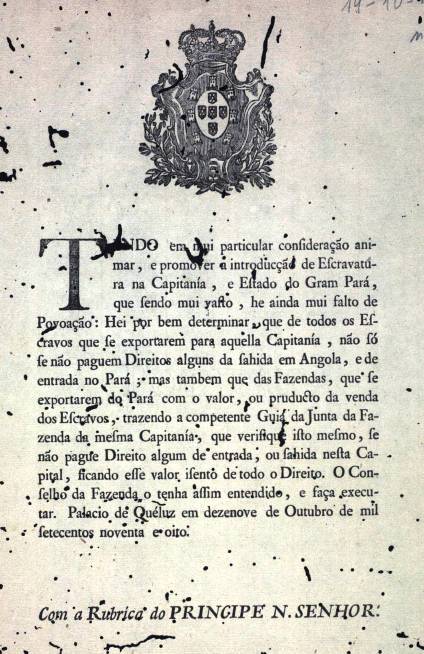 19-10-
TENDO em mui particular conſideração ani-
mar, e promover a introducção de Eſcravatú-
ra na Capitanía, e Eſtado do Gram Pará,
que ſendo mui vaſto, he ainda mui falto de
Povoação: Hei por bem determinar, que de todos os Eſ-
cravos que ſe exportarem para aquella Capitanía, não ſó
ſe não paguem Direitos alguns da ſahida em Angola, e de
entrada no Pará; mas tambem que das Fazendas, que ſe
exportarem do Pará com o valor, ou pruducto da venda
dos Eſcravos, trazendo a competente Guia da Junta da Fa-
zenda da meſma Capitanía, que verifique iſto meſmo, ſe
não pague Direito algum de entrada; ou ſahida neſta Ca-
pital, ficando eſſe valor iſento de todo o Direito. O Con-
ſelho da Fazenda o tenha aſſim entendido, e faça execu-
tar. Palacio de Quéluz em dezenove de Outubro de mil
ſetecentos noventa e oito.
Com a Rubrica do PRINCIPE N. SENHOR.